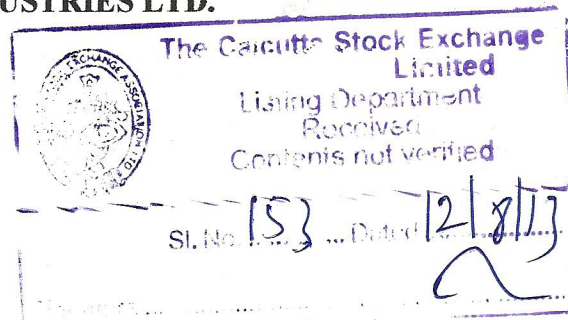 USTRIES LTD.
The Calcutta Stock Exchange
Limited
Listing Department
Received
Contents not verified
EXCHANGE ASSOCIATION LTD
Sl. No. 153 Dated 12/8/13